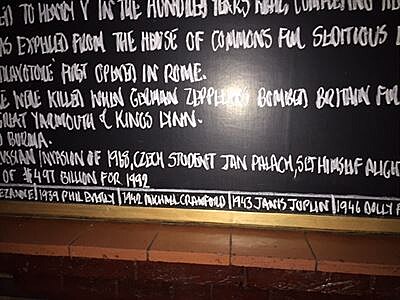 TO HENRY V IN THE HUNDRED YEARS WAR, COMPLETING THE
AS EXPELLED FROM THE HOUSE OF COMMONS FOR SEDITIOUS
FIRST OPENED IN ROME.
WERE KILLED WHEN GERMAN ZEPPELINS BOMBED BRITAIN FOR
GREAT YARMOUTH & KINGS LYNN.
BURMA.
RUSSIAN INVASION OF 1968, CZECH STUDENT JAN PALACH, SET HIMSELF ALIGHT
OF $497 BILLION FOR 1992
EZANNE | 1939 PHIL EVERLY | 1942 MICHAEL CRAWFORD | 1943 JANIS JOPLIN | 1946 DOLLY P